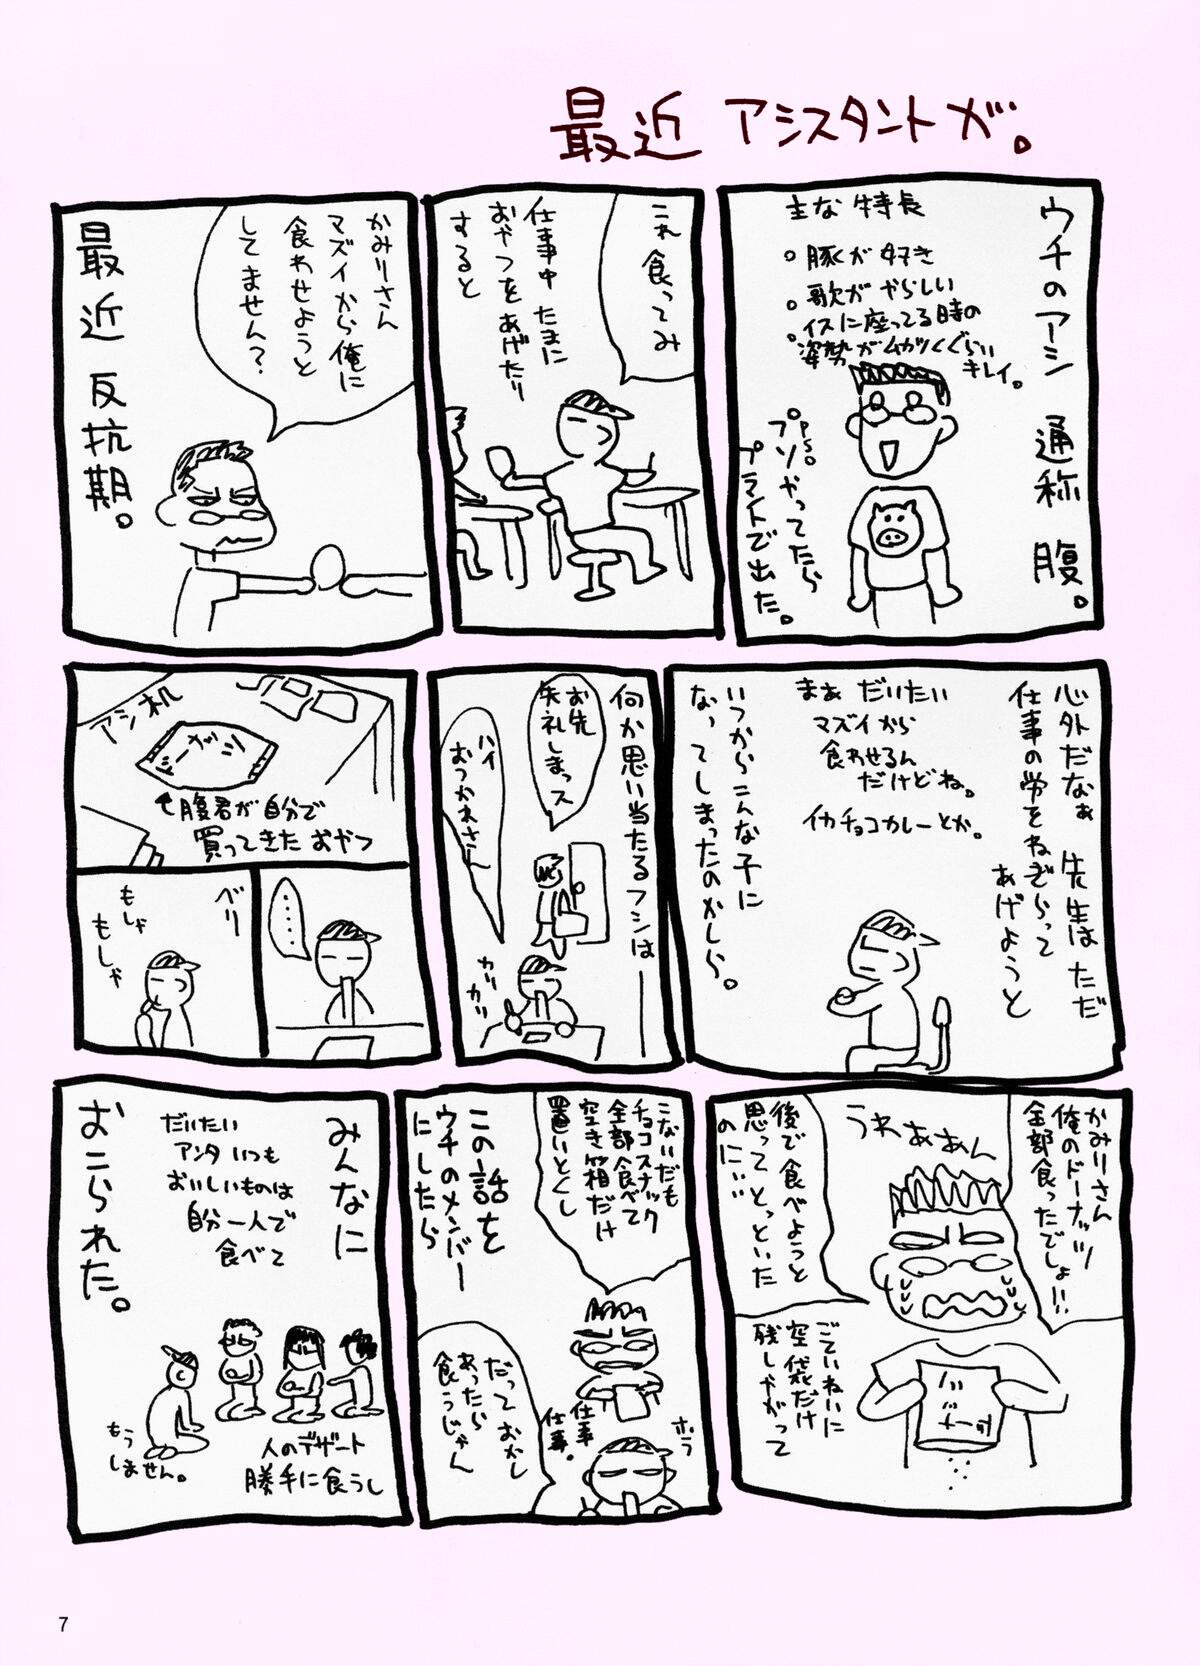 最近 アシスタントが。
ウチのアシ 通称 腹。
主な特長
豚くが好き
歌がやらしい
イスに座ってる時の
姿勢がムカツくぐらい
キレイ。
P.S.
プソやってたら
プライトで出た。
これ食ってみ
仕事中 たまに
おやつをあげたり
すると
かみりさん
マズイから俺に
食わせようと
してません?
最近 反抗期。
心外だなぁ 先生はただ
仕事の労をねぎらって
あげようと
まぁ だいたい
マズイから
食わせるん
だけどね。
イカチョコカレーとか。
いつからこんな子に
なってしまったのかしら。
何か思い当たるフシは
お先
失礼しまっス
ハイ
おつかれさん
カリ
カリ
アシ机
腹君が自分で
買ってきた おやつ
・・・・
べリー
もしゃ
もしゃ
かみりさん
俺のドーナッツ
全部食ったでしょ!!
うわぁぁぁん
後で食べようと
思って とっといた
のに・・・
ごていねいに
空袋だけ
残しやがって
こないだも
チョコスナック
全部食べて
空き箱だけ
置いとくし
この話を
ウチのメンバー
にしたら
だって おかし
あったら
食うじゃん
仕事
仕事。
ホラ
みんなに
だいたい
アンタ いつも
おいしいものは
自分一人で
食べて
おこられた。
人のデザート
勝手に食うし
もう
しません。
7